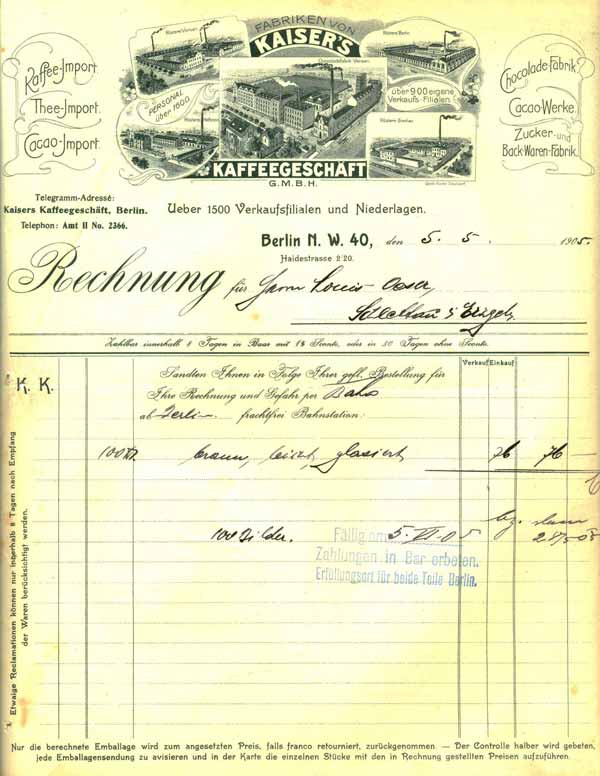 FABRIKEN VON
KAISER'S
Rösterei Viersen
Rösterei Berlin
Chocoladefabrik Viersen
PERSONAL
über 1600
über 900 eigene
Verkaufs-Filialen
Rösterei Heilbronn
Rösterei Breslau
KAFFEEGESCHÄFT
G.M.B.H.
Kaffee-Import.
Thee-Import.
Cacao-Import.
Chocolade-Fabrik
Cacao-Werke.
Zucker- und
Back-Waren-Fabrik.
Telegramm-Adresse:
Kaisers Kaffeegeschäft, Berlin.
Telephon: Amt II No. 2366.
Ueber 1500 Verkaufsfilialen und Niederlagen.
Berlin N. W. 40, den 5. 5. 1905.
Haidestrasse 2/20.
Rechnung für Herrn Louis
Zahlbar innerhalb 8 Tagen in Baar mit 1% Sconto, oder in 30 Tagen ohne Sconto.
Verkauf Einkauf
K. K.
Sandten Ihnen in Folge Ihrer gefl. Bestellung für
Ihre Rechnung und Gefahr per Bahn
ab Berlin frachtfrei Bahnstation:
100 braun, leicht, glasiert 76 76 —
100 Bilder.
Fällig am 5. VI. 05
Zahlungen in Bar erbeten.
Erfüllungsort für beide Teile Berlin.
Etwaige Reclamationen können nur innerhalb 8 Tagen nach Empfang
der Waren berücksichtigt werden.
Nur die berechnete Emballage wird zum angesetzten Preis, falls franco retourniert, zurückgenommen. — Der Controlle halber wird gebeten,
jede Emballagensendung zu avisieren und in der Karte die einzelnen Stücke mit den in Rechnung gestellten Preisen aufzuführen.